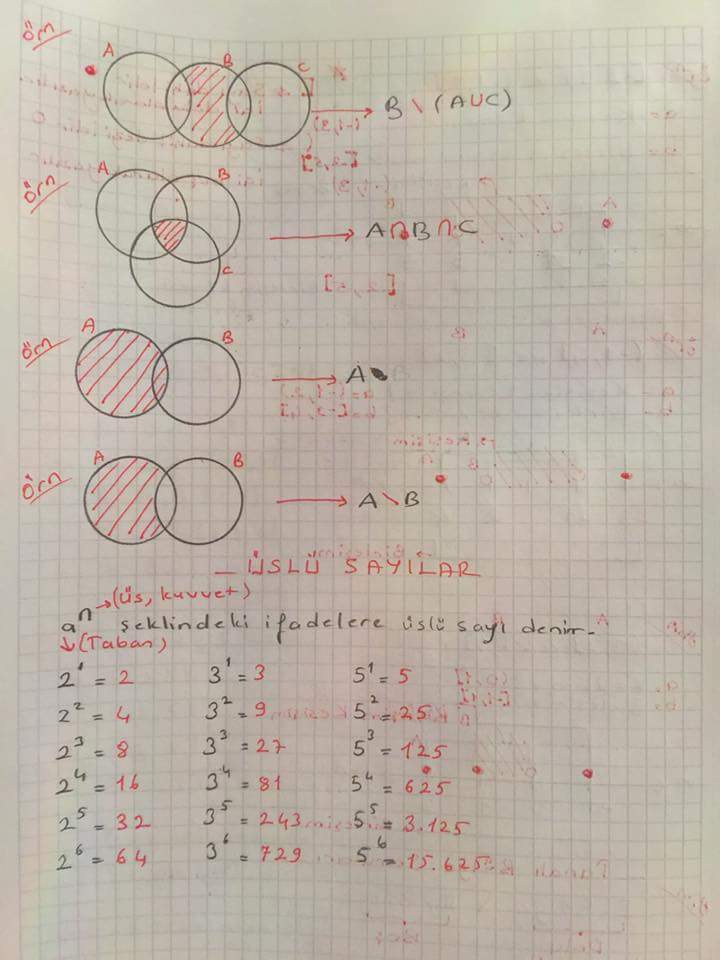 örn
A B C
B \ (AUC)
örn
A B
C
A∩B∩C
örn
A B
A
örn
A B
A \ B
ÜSLÜ SAYILAR
aⁿ → (üs, kuvvet)
şeklindeki ifadelere üslü sayı denir.
↓ (Taban)
2¹ = 2 3¹ = 3 5¹ = 5
2² = 4 3² = 9 5² = 25
2³ = 8 3³ = 27 5³ = 125
2⁴ = 16 3⁴ = 81 5⁴ = 625
2⁵ = 32 3⁵ = 243 5⁵ = 3.125
2⁶ = 64 3⁶ = 729 5⁶ = 15.625